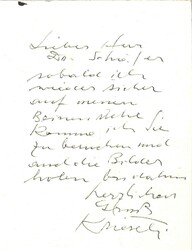 Lieber Herr
Dr. Schäfer
sobald ich
wieder sicher
auf meinen
Beinen stehe
komme ich Sie
zu besuchen und
und die Bilder
holen bis dahin
herzlichen
Gruß